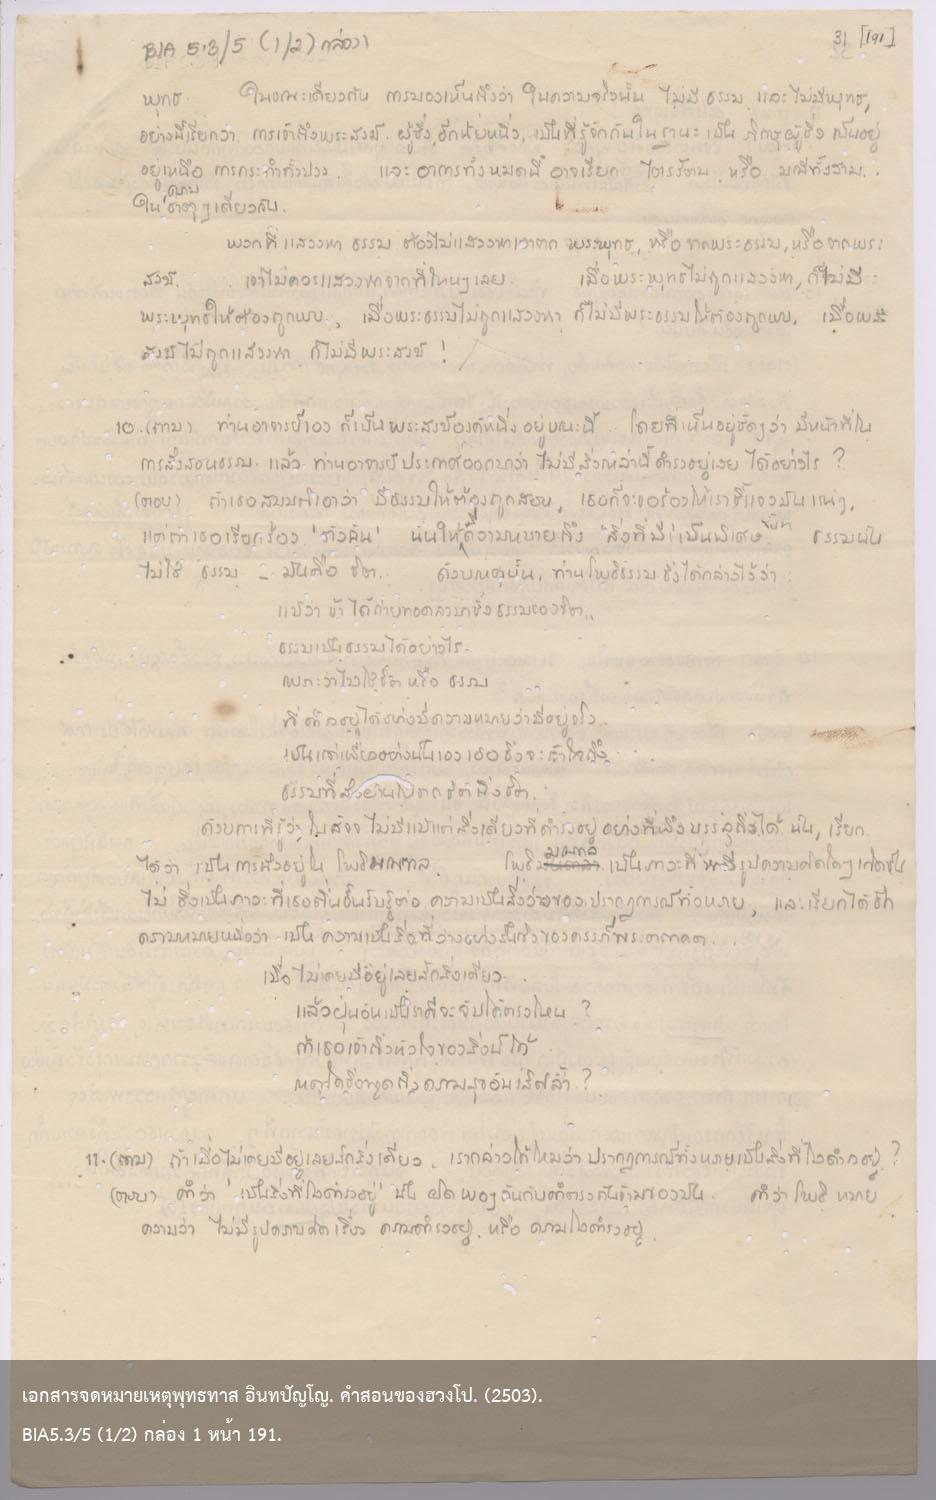 BIA 5.3/5 (1/2) กล่อง1
31 [191]
พุทธ. ในขณะเดียวกัน การมองเห็นถึงว่า ในความจริงนั้น ไม่มี ธรรม และ ไม่มีพุทธ,
อย่างนี้เรียกว่า การเข้าถึงพระสงฆ์ ผู้ซึ่ง, อีกนัยหนึ่ง, เป็นที่รู้จักกันใน ฐานะ เป็น ภิกษุผู้ซึ่ง เป็นอยู่
อยู่เหนือ การกระทำทั้งปวง. และ อาการทั้งหมดนี้ อาจเรียก ไตรรัตน หรือ มณีทั้งสาม.
ความ
ใน ธาตุๆเดียวกัน.
พวกที่ แสวงหา ธรรม ต้องไม่แสวงหาเอาจาก พระพุทธ, หรือ จากพระธรรม, หรือจากพระ
สงฆ์. เขาไม่ควรแสวงหาจากที่ไหนๆเลย เมื่อพระพุทธไม่ถูกแสวงหา, ก็ไม่มี
พระพุทธให้ต้องถูกพบ, เมื่อพระธรรมไม่ถูกแสวงหา ก็ไม่มีพระธรรมให้ต้องถูกพบ, เมื่อพระ
สงฆ์ไม่ถูกแสวงหา ก็ไม่มีพระสงฆ์ !
10. (ถาม) ท่านอาจารย์เอง ก็เป็นพระสงฆ์องค์หนึ่ง อยู่ขณะนี้ โดยที่เห็นอยู่ชัดๆว่า มีหน้าที่ใน
การสั่งสอนธรรม. แล้ว ท่านอาจารย์ประกาศออกมาว่า ไม่มีสิ่งเหล่านี้ดำรงอยู่เลย ได้อย่างไร ?
(ตอบ) ถ้าเธอสมมติเอาว่า มีธรรมให้ต้องถูกสอน, เธอก็จะขอร้องให้เราชี้แจงมัน แน่ๆ,
แต่ถ้าเธอเรียกร้อง 'ตัวฉัน' นั่นให้ความหมายถึง สิ่งที่มีเป็นพิเศษขึ้นมา ธรรมนั้น
ไม่ใช่ ธรรม – มันคือ จิต. ด้วยเหตุนั้น, ท่านโพธิธรรม จึงได้กล่าวไว้ว่า :
แม้ว่า ข้าได้ถ่ายทอดลงมาซึ่งธรรมของจิต..
ธรรมเป็นธรรมได้อย่างไร.
เพราะว่าไม่ใช่จิต หรือ ธรรม
ที่ดำรงอยู่ได้อย่างมีความหมายว่ามีอยู่จริง.
เป็นแต่เพียงอย่างนั้นเอง เธอจึงจะเข้าใจถึง
ธรรมที่ส่งผ่านไปจากจิตถึงจิต.
ด้วยการที่รู้ว่า ในสัจจ ไม่มีแม้แต่สิ่งเดียวที่ดำรงอยู่ อย่างที่พึงบรรลุถึงได้ นั้น, เรียก
ได้ว่า เป็นการนั่งอยู่ใน โพธิมณฑล. โพธิมณฑล เป็นภาวะที่ ไม่มีรูปความคิดใดๆ เกิดขึ้น
ไม่ ซึ่งเป็นภาวะที่เธอตื่นขึ้นรับรู้ต่อ ความเป็นสิ่งว่างของปรากฏการณ์ทั้งหลาย, และเรียกได้อีก
ความหมายหนึ่งว่า เป็น ความเป็นสิ่งที่ว่างอย่างยิ่งของครรภ์พระตถาคต.
เมื่อไม่เคยมีอยู่เลยสักสิ่งเดียว.
แล้วฝุ่นอันเป็นราคีจะจับได้ตรงไหน ?
ถ้าเธอเข้าถึงหัวใจของสิ่งนี้ได้
เหตุใดจึงพูดถึงความสุขอันเลิศล้ำ ?
11. (ถาม) ถ้าเมื่อไม่เคยมีอยู่เลยสักสิ่งเดียว. เรากล่าวได้ไหมว่า ปรากฏการณ์ทั้งหลายเป็นสิ่งที่ไม่ดำรงอยู่ ?
(ตอบ) คำว่า 'เป็นสิ่งที่ไม่ดำรงอยู่' นั้น ผิด พอๆกันกับคำตรงกันข้ามของมัน. คำว่า โพธิ หมาย
ความว่า ไม่มีรูปความคิดเรื่อง ความดำรงอยู่ หรือ ความไม่ดำรงอยู่.
เอกสารจดหมายเหตุพุทธทาส อินทปัญโญ. คำสอนของฮวงโป. (2503).
BIA5.3/5 (1/2) กล่อง 1 หน้า 191.